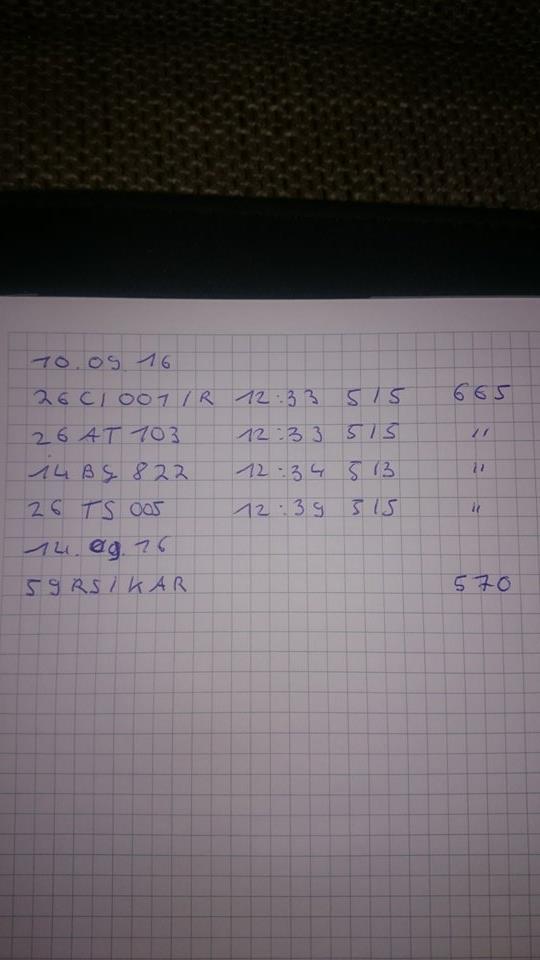 10.09.16
26 CI 001 / R 12:33 5/5 665
26 AT 103 12:33 5/5 "
14 BS 822 12:34 5/3 "
26 TS 005 12:39 5/5 "
14.09.16
59 RS / KAR 570